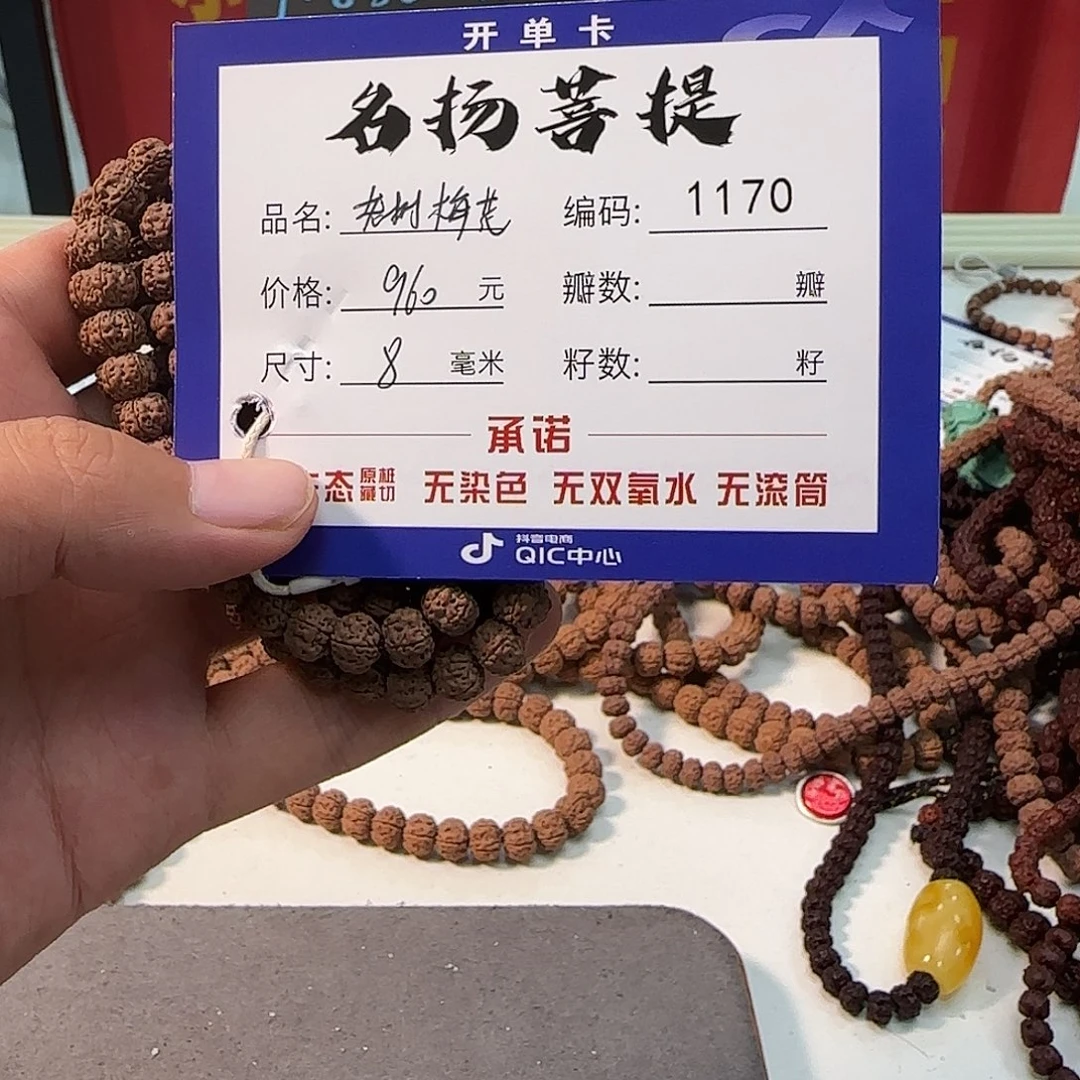 开单卡
名扬菩提
品名: 老树梅花 编码: 1170
价格: 960 元 瓣数: 瓣
尺寸: 8 毫米 籽数: 籽
承诺
态 原桩藏切 无染色 无双氧水 无滚筒
抖音电商
QIC中心